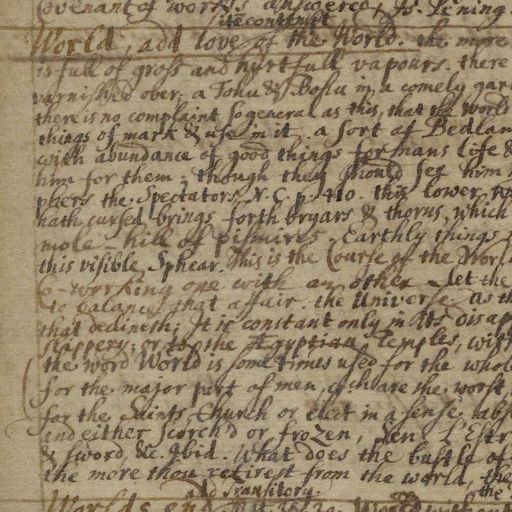 Covenant of works answered,
its contempt
World, add love of the World. the more
is full of gross and hurtfull vapours. there
varnished over, a Tohu & Bohu in a comely gar
there is no complaint so general as this, that the world
things of mark & use in it, a sort of Bedlam
with abundance of good things for mans life &
him for them; though they should see him
phers the Spectators. N.C. p. 110. this lower
hath cursed brings forth bryars & thorns, which
mole-hill of pismires. Earthly things
this visible Sphear. This is the Course of the World
6-working one with an other let the
to balance that affair. the Universe. As th
that declineth; It is constant only in its disap
slippery; or to the Egyptian Temples, wit
the word World is sometimes used for the whol
for the major part of men, wch are the worst
for the Saints Church or elect in a sense
and either scorch'd or frozen, Sen. L'Estr
& sword, &c. ibid. what does the bustle of
the more thou retirest from the world, the
add Transitory. the
Worlds end